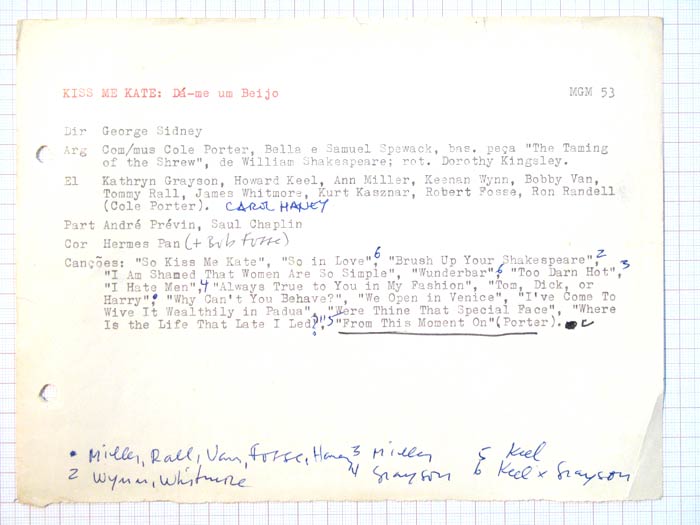 KISS ME KATE: Dá-me um Beijo
MGM 53
Dir George Sidney
Arg Com/mus Cole Porter, Bella e Samuel Spewack, bas. peça "The Taming
of the Shrew", de William Shakespeare; rot. Dorothy Kingsley.
El Kathryn Grayson, Howard Keel, Ann Miller, Keenan Wynn, Bobby Van,
Tommy Rall, James Whitmore, Kurt Kasznar, Robert Fosse, Ron Randell
(Cole Porter). CAROL HANEY
Part André Prévin, Saul Chaplin
Cor Hermes Pan (+ Bob Fosse)
Canções: "So Kiss Me Kate", "So in Love",6 "Brush Up Your Shakespeare",2
"I Am Shamed That Women Are So Simple", "Wunderbar",6 "Too Darn Hot",3
"I Hate Men",4 "Always True to You in My Fashion", "Tom, Dick, or
Harry", "Why Can't You Behave?", "We Open in Venice", "I've Come To
Wive It Wealthily in Padua", "Were Thine That Special Face", "Where
Is the Life That Late I Led?",5 "From This Moment On"(Porter).
• Miller, Rall, Van, Fosse, Haney 3 Miller 5 Keel
2 Wynn, Whitmore 4 Grayson 6 Keel x Grayson